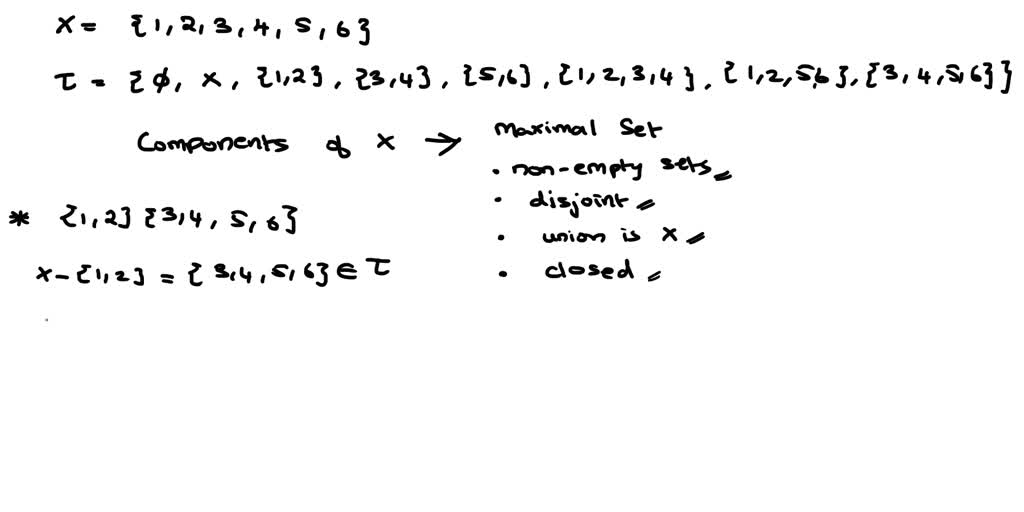 X = {1, 2, 3, 4, 5, 6}
τ = {ϕ, X, {1,2}, {3,4}, {5,6}, {1, 2, 3, 4}, {1, 2, 5,6}, {3, 4, 5,6}}
Components of X → Maximal Set
• non-empty sets
• disjoint
* {1,2} {3,4, 5, 6}
• union is X
X - {1,2} = {3,4, 5, 6} ∈ τ
• closed